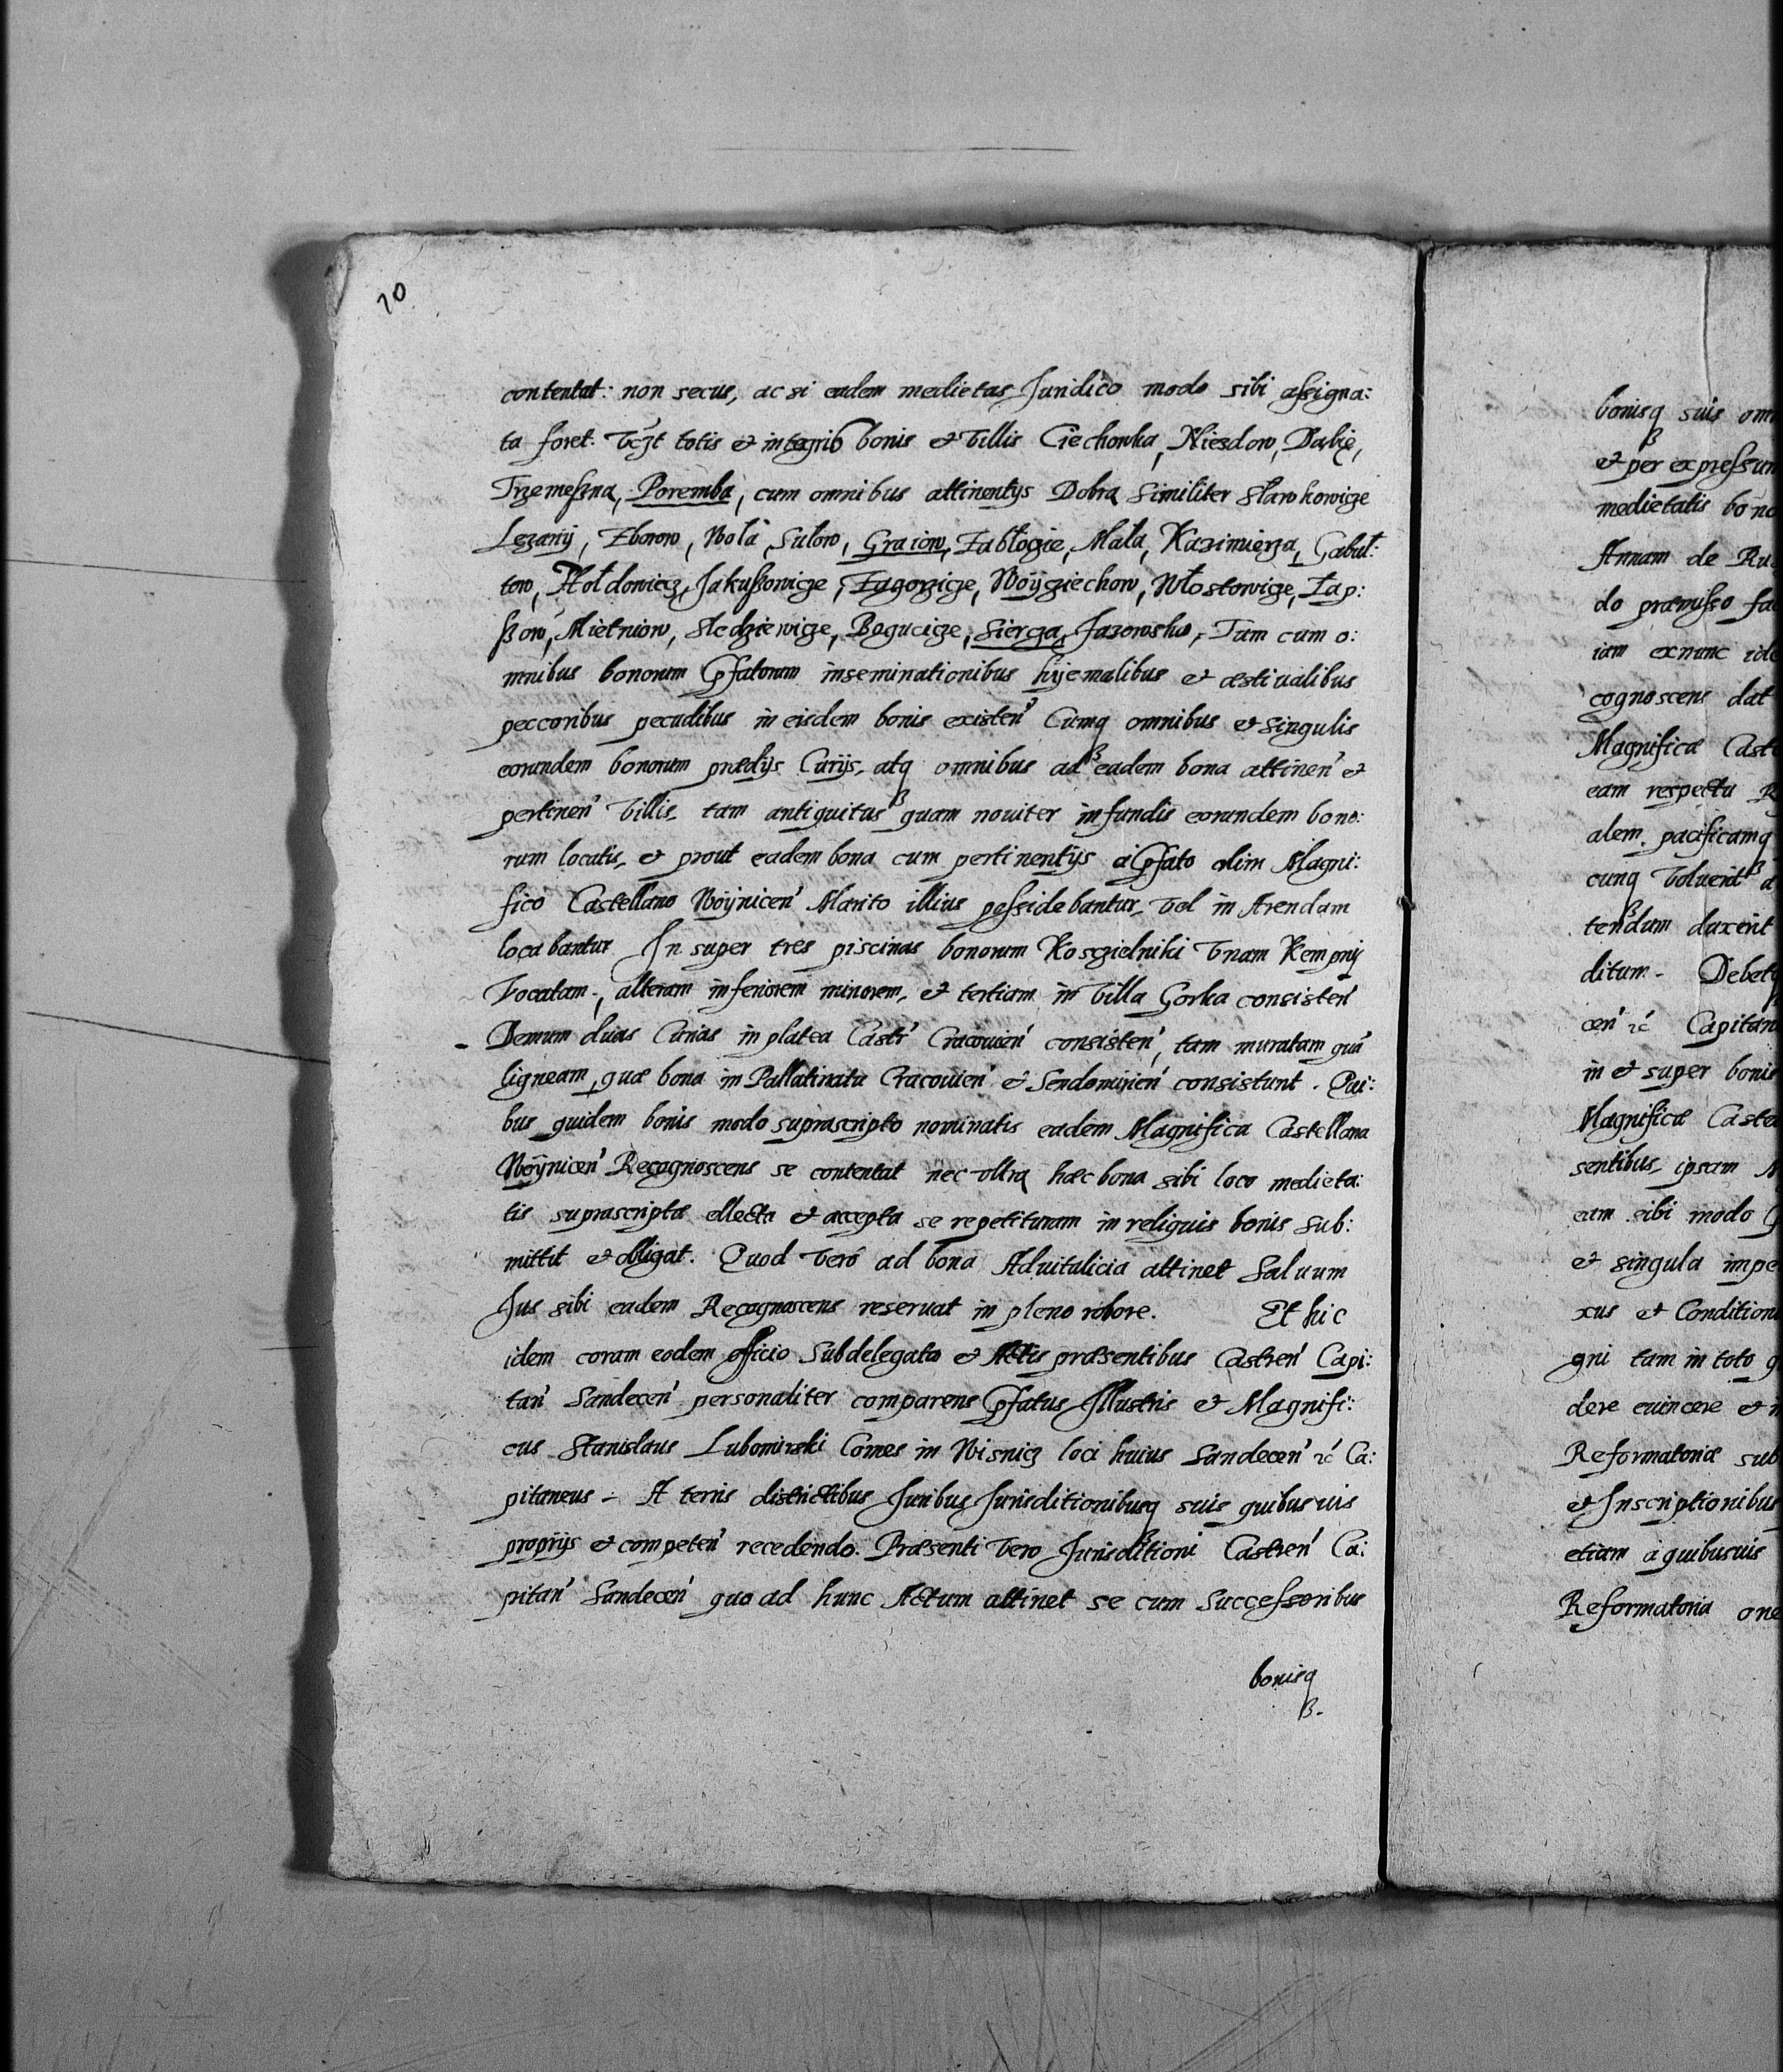 10
contentat: non secus, ac si eadem medietas Juridico modo sibi assigna:
ta foret. Vczt totis et integrib bonis et Villis Ciechowka, Niezdow, Dabię,
Trzemeszna, Poremba, cum omnibus attinentijs Dobra Similiter Sławkowicze
Lezany, Zborow, Wola Sułow, Graiow, Zabłogie, Mała, Kazimierza, Gabuł:
tow, Hołdowiecz, Jakuszowicze, Zagorzicze, Woyciechow, Włostowicze, Łap:
szow, Mietniow, Sledziewicze, Bogucicze, Siercza, Jazowsko, Tum cum o:
mnibus bonorum Pfatorum inseminationibus hijemalibus et æstiualibus
peccoribus pecudibus in eisdem bonis existen Cumq omnibus et singulis
eorundem bonorum prædijs Curijs, atq omnibus ad eadem bona attinen et
pertinen Villis, tam antiquitus quam nouiter in fundis eorundem bono:
rum locatis, et prout eadem bona cum pertinentijs a Pfato olim Magni:
fico Castellano Woynicen Marito illius possidebantur, Vel in Arendam
locabantur In super tres piscinas bonorum Kosczielniki Vnam Kempnij
Vocatam, alteram inferiorem minorem, et tertiam in Villa Gorka consisten
Demum duas Curias in platea Castr Cracouien consisten, tam muratam quã
ligneam, quæ bona in Pallatinatu Cracouien et Sendomirien consistunt. Qui:
bus quidem bonis modo suprascripto nominatis eadem Magnifica Castellana
Woynicen Recognoscens se contentat nec vltra hæc bona sibi loco medieta:
tis suprascriptæ ellecta et accepta se repetituram in reliquis bonis Sub:
mittit et obligat. Quod Verò ad bona Aduitalicia attinet Saluum
Jus sibi eadem Recognoscens reseruat in pleno robore. Et hic
idem coram eodem officio Subdelegato et Actis præsentibus Castren Capi:
tan Sandecen personaliter comparens Pfatus Illustris et Magnifi:
cus Stanislaus Lubomirski Comes in Wisnicz loci huius Sandecen rc Ca:
pitaneus - A terris districtibus Juribus Jurisditionibusq suis quibusuis
proprijs et competen recedendo. Præsenti Vero Jurisditioni Castren Ca:
pitan Sandecen quo ad hunc Actum attinet se cum Successoribus
bonisq
bonisq suis om
et per expressum
medietatis bono
Annam de Rus
do præmisso fa
iam exnunc ide
cognoscens dat
Magnificæ Cast
eam respectu R
alem, pacificamq
cunq Voluerit a
tendam duxerit
ditum - Debet
cen rc Capitan
in et super bonis
Magnificæ Caste
sentibus, ipsam M
eam sibi modo
et singula impe
xus et Condition
gni tam in toto q
dere euincere et
Reformatoriæ sub
et Inscriptionibus
etiam a quibusuis
Reformatoria one